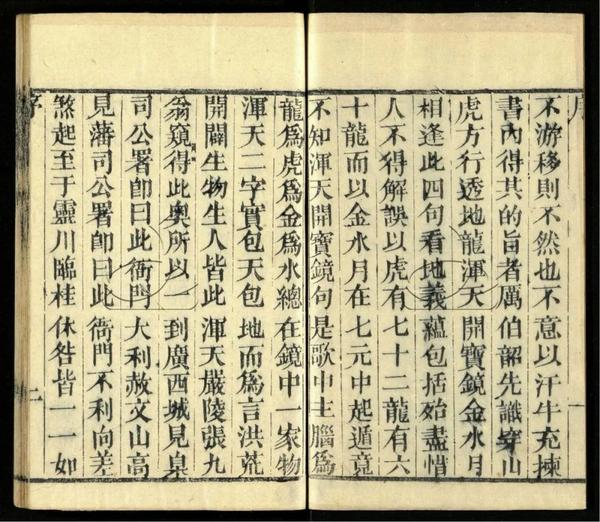 不游移則不然也不意以汗牛充揀
書內得其的旨者厲伯韶先識穿山
虎方行透地龍渾天開寶鏡金水月
相逢此四句看地義蘊包括始盡惜
人不得解誤以虎有七十二龍有六
十龍而以金水月在七元中起遁竟
不知渾天開寶鏡句是歌中主腦爲
龍爲虎爲金爲水總在鏡中一家物
渾天二字實包天包地而爲言洪荒
開闢生物生人皆此渾天嚴陵張九
翁窺得此奧所以一到廣西城見臬
司公署卽曰此衙門大利赦文山高
見藩司公署卽曰此衙門不利向差
煞起至于靈川臨桂休咎皆一一如
序 二